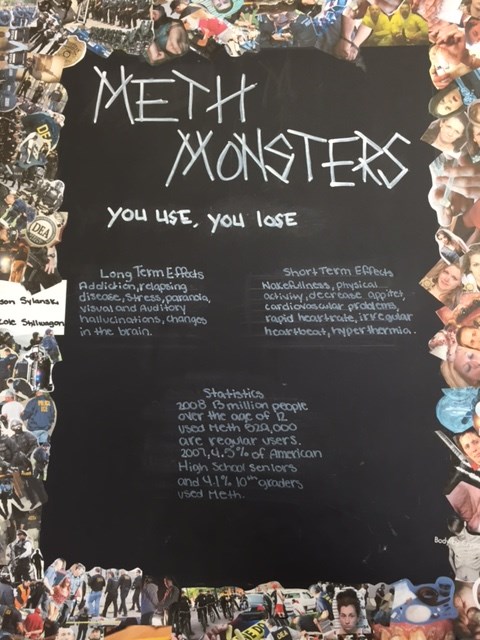 METH
MONSTERS
YOU USE, YOU LOSE
Long Term Effects
Addiction, relapsing
disease, Stress, paranoia,
visual and Auditory
hallucinations, changes
in the brain.
Short Term Effects
Wakefullness, physical
activity, decrease appitet,
cardiovascular problems,
rapid heartrate, irregular
heartbeat, hyperthermia.
Statistics
2008 13 million people
over the age of 12
used Meth 529,000
are regular users.
2007, 4.5% of American
High School seniors
and 4.1% 10th graders
used Meth.
son Sylanski
cole Stillwagon
DEA
DEA
Body